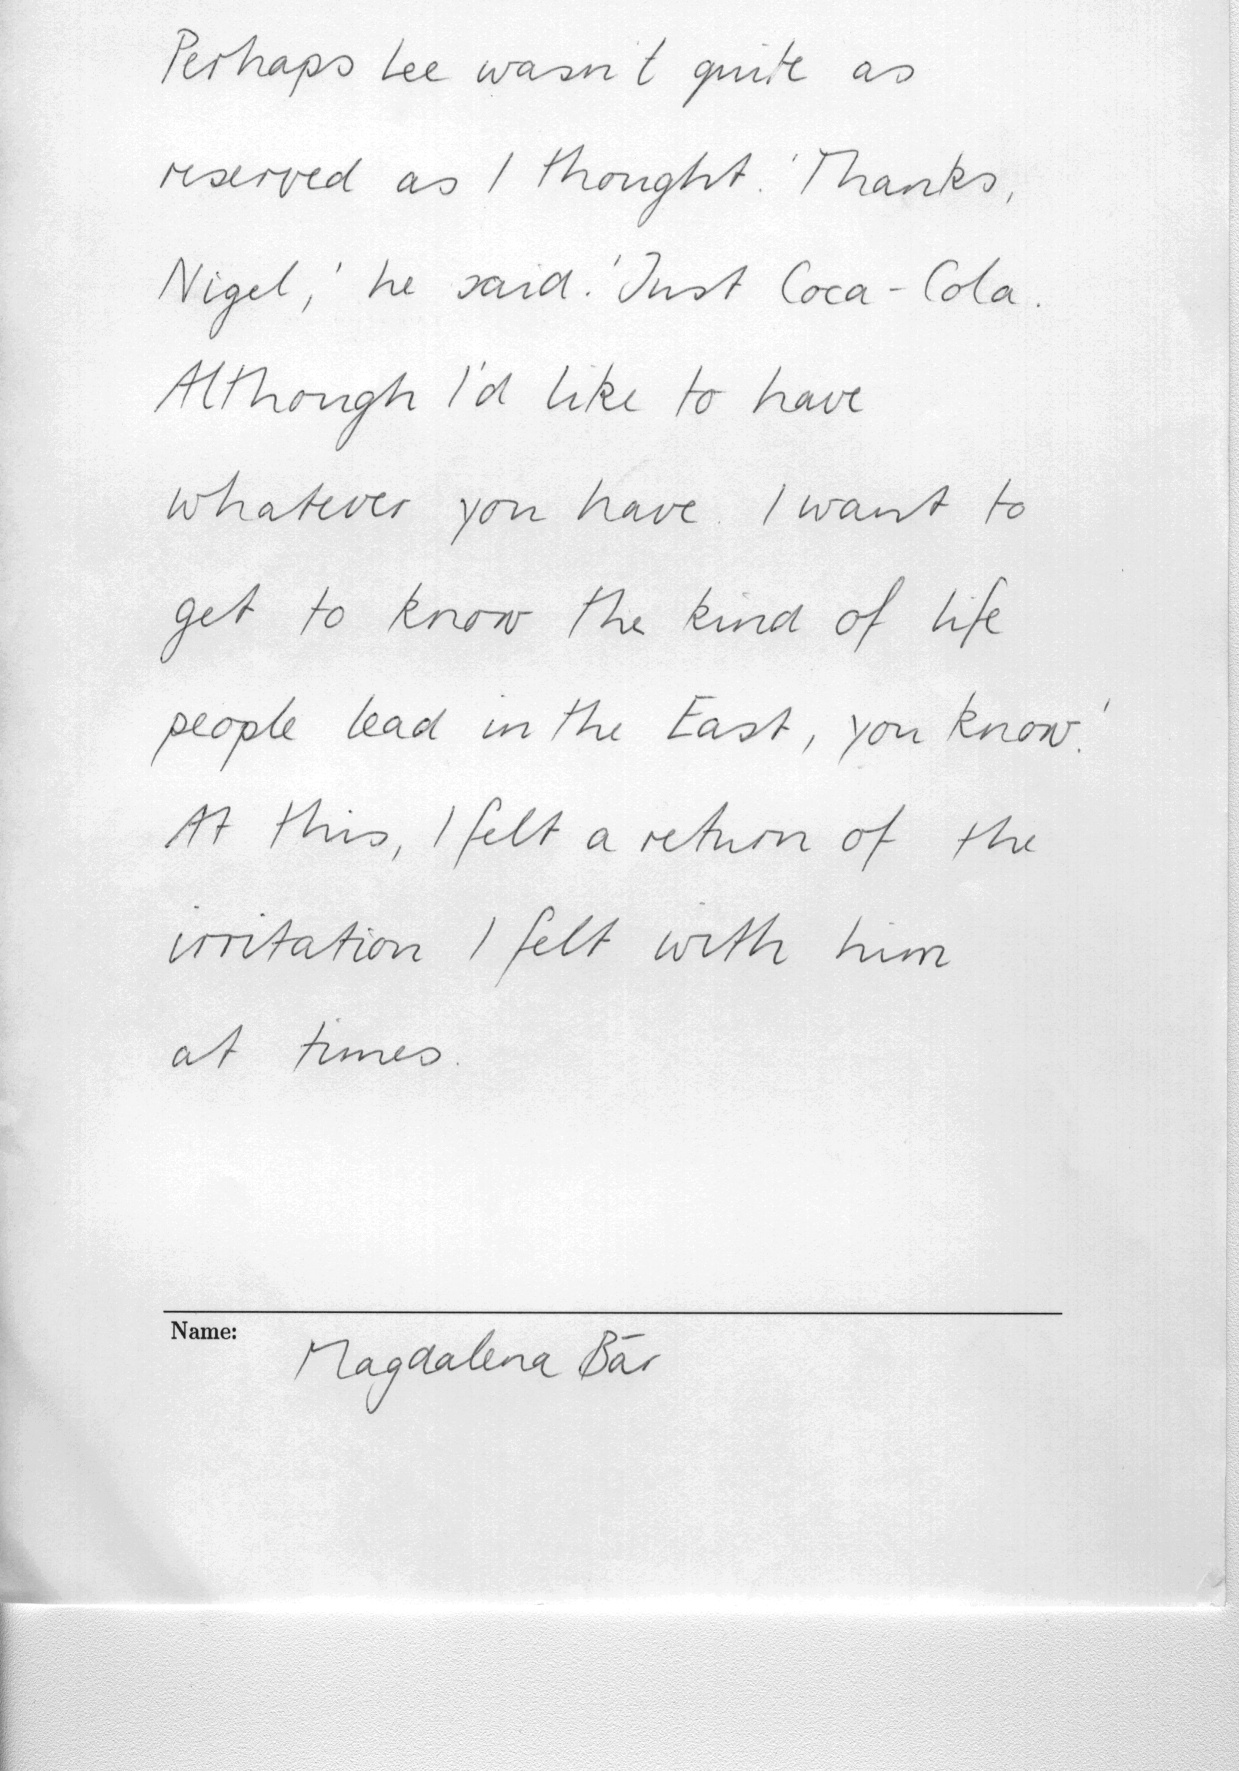 Perhaps Lee wasn't quite as
reserved as I thought. 'Thanks,
Nigel,' he said. 'Just Coca-Cola.
Although I'd like to have
whatever you have. I want to
get to know the kind of life
people lead in the East, you know.'
At this, I felt a return of the
irritation I felt with him
at times.
Name:
Magdalena Bär